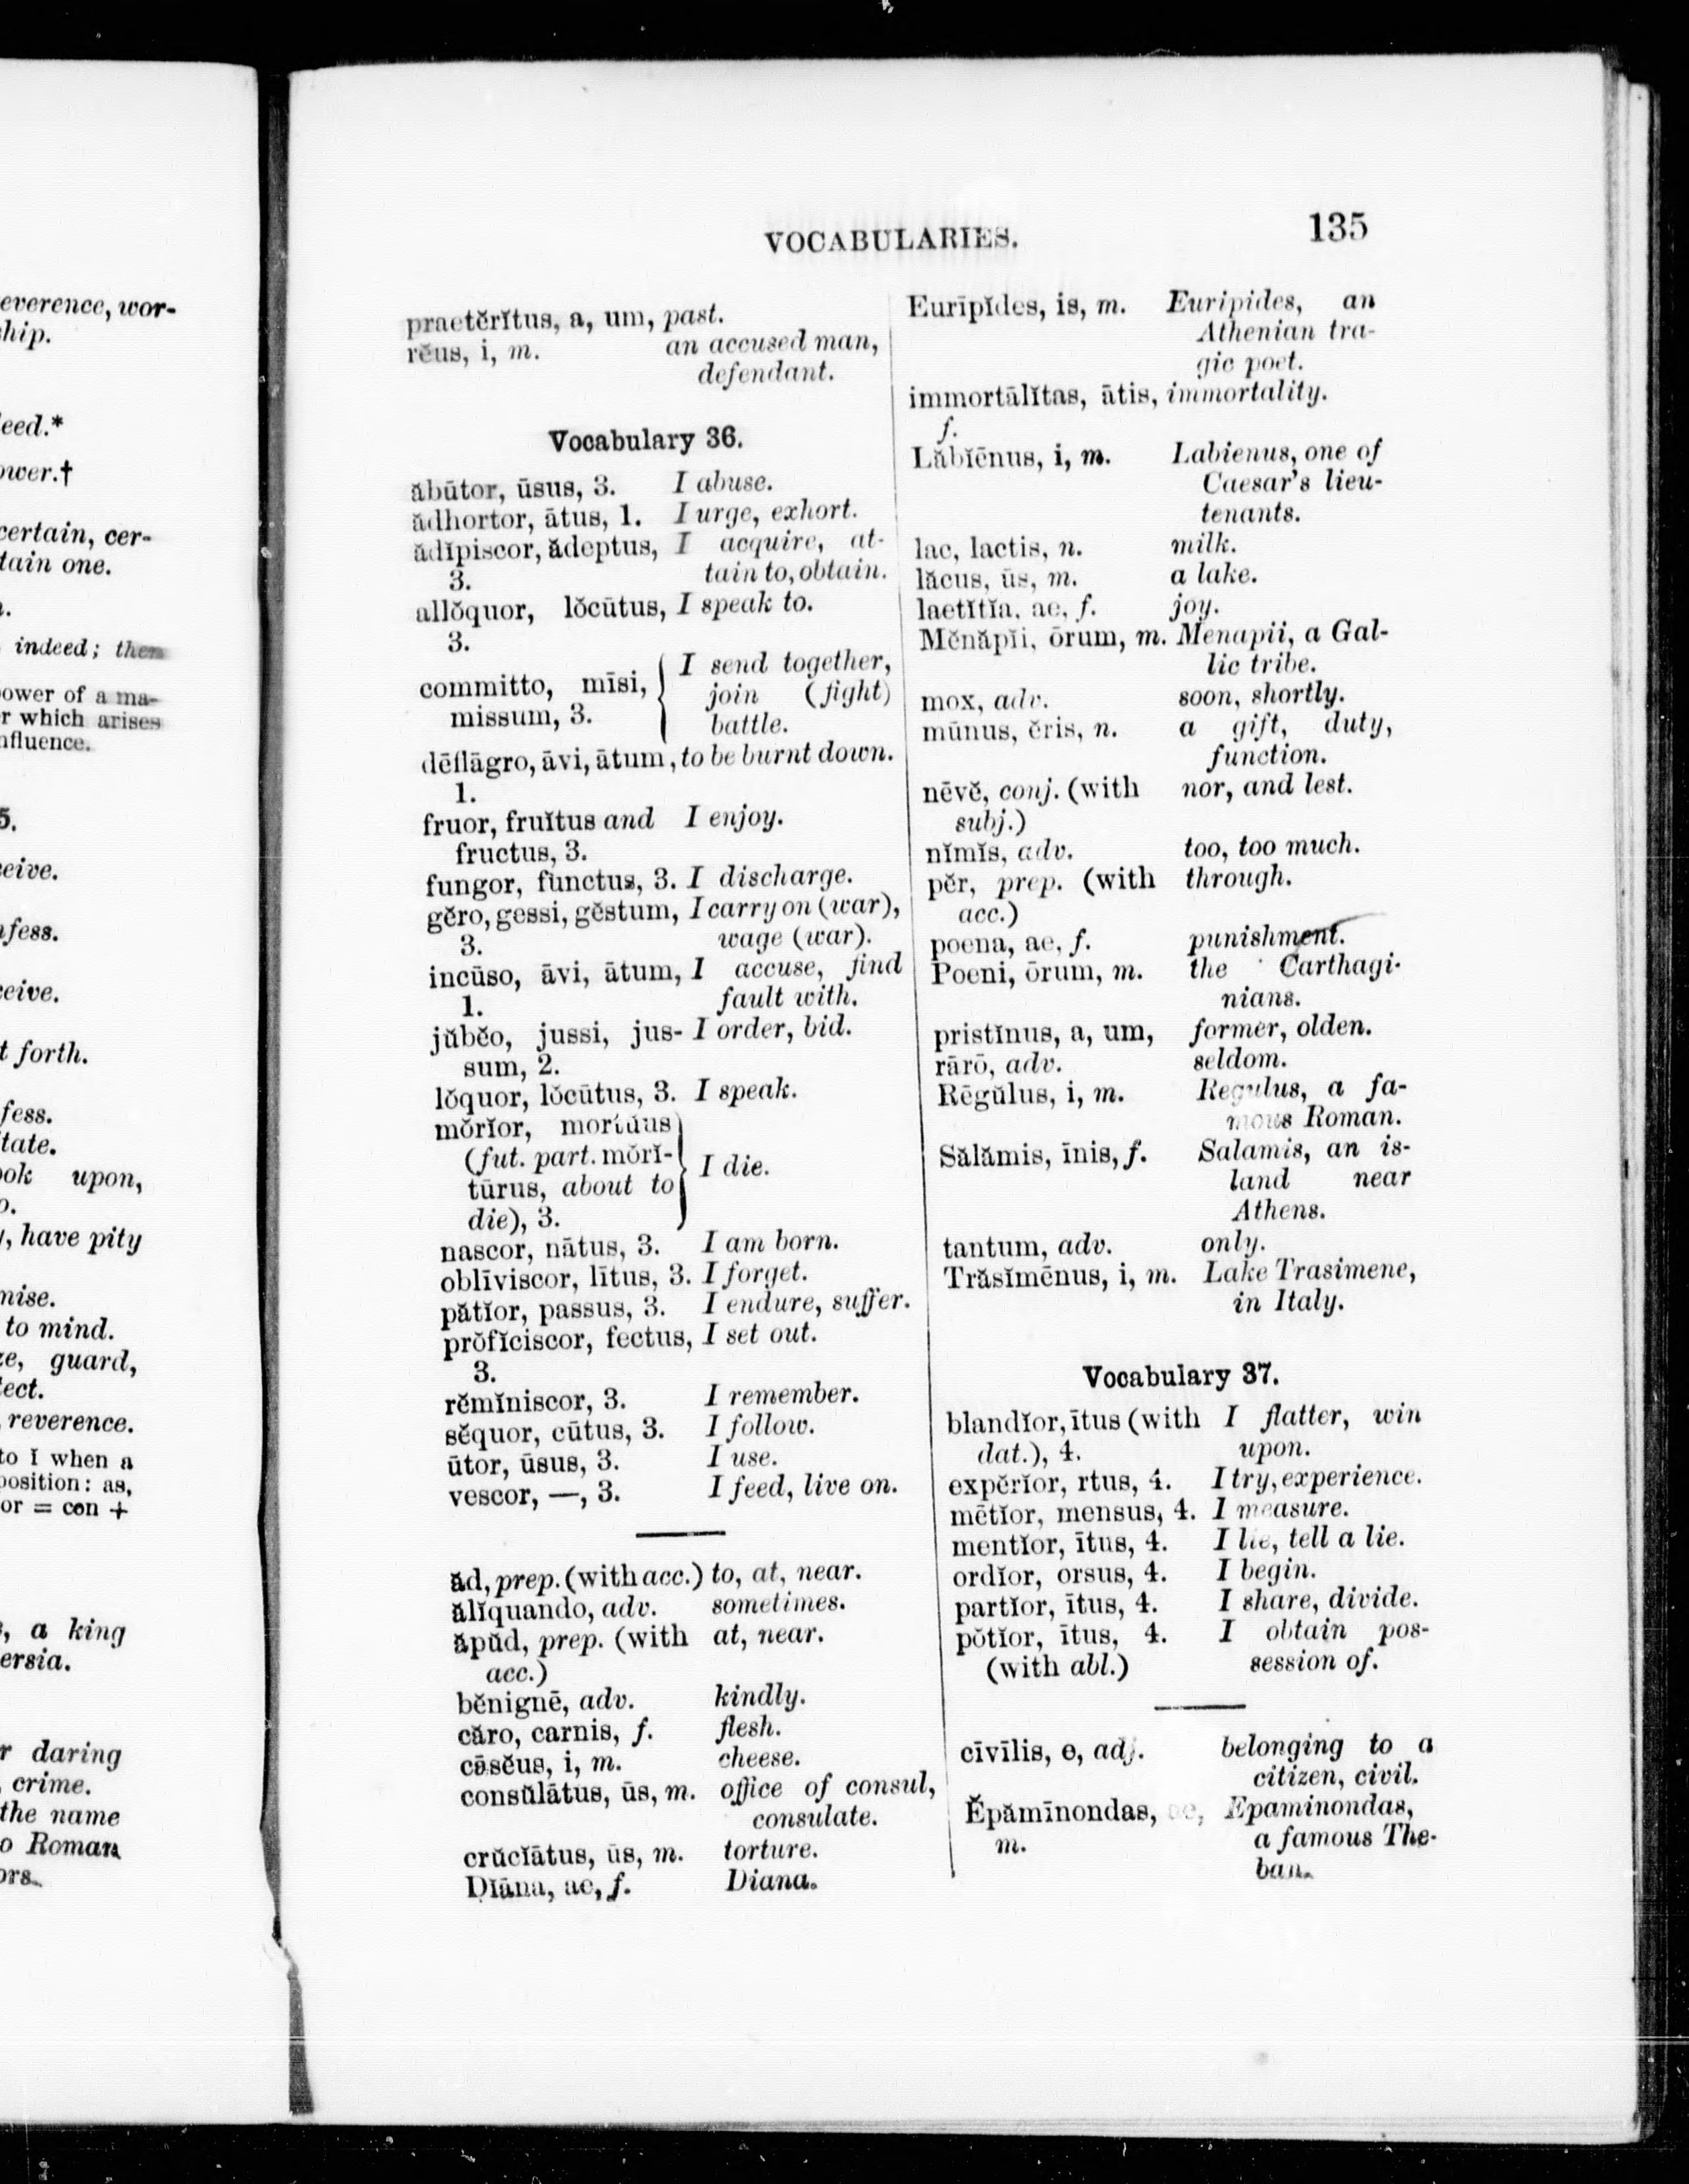 everence, wor-
hip.
eed.*
ower.†
certain, cer-
tain one.
indeed; then
ower of a ma-
r which arises
nfluence.
5.
ceive.
nfess.
ceive.
t forth.
fess.
tate.
ook upon,
o.
y, have pity
mise.
to mind.
ze, guard,
tect.
reverence.
to I when a
position: as,
or = con +
s, a king
ersia.
r daring
crime.
the name
o Roman
ors.
VOCABULARIES. 135
praetĕrĭtus, a, um, past.
rĕus, i, m. an accused man,
defendant.
Vocabulary 36.
ăbūtor, ūsus, 3. I abuse.
ădhortor, ātus, 1. I urge, exhort.
ădĭpiscor, ădeptus, I acquire, at-
3. tain to, obtain.
allŏquor, lŏcūtus, I speak to.
3.
I send together,
committo, mīsi, join (fight)
missum, 3. battle.
dēflāgro, āvi, ātum, to be burnt down.
1.
fruor, fruĭtus and I enjoy.
fructus, 3.
fungor, functus, 3. I discharge.
gĕro, gessi, gĕstum, I carry on (war),
3. wage (war).
incūso, āvi, ātum, I accuse, find
1. fault with.
jŭbĕo, jussi, jus- I order, bid.
sum, 2.
lŏquor, lŏcūtus, 3. I speak.
mŏrĭor, mortuus
(fut. part. mŏrĭ- I die.
tūrus, about to
die), 3.
nascor, nātus, 3. I am born.
oblīviscor, lītus, 3. I forget.
pătĭor, passus, 3. I endure, suffer.
prŏfĭciscor, fectus, I set out.
3.
rĕmĭniscor, 3. I remember.
sĕquor, cūtus, 3. I follow.
ūtor, ūsus, 3. I use.
vescor, —, 3. I feed, live on.
ăd, prep. (with acc.) to, at, near.
ălĭquando, adv. sometimes.
ăpŭd, prep. (with at, near.
acc.)
bĕnignē, adv. kindly.
căro, carnis, f. flesh.
cāsĕus, i, m. cheese.
consŭlātus, ūs, m. office of consul,
consulate.
crŭcĭātus, ūs, m. torture.
Dĭāna, ae, f. Diana.
Eurīpĭdes, is, m. Euripides, an
Athenian tra-
gic poet.
immortālĭtas, ātis, immortality.
f.
Lăbĭēnus, i, m. Labienus, one of
Caesar's lieu-
tenants.
lac, lactis, n. milk.
lăcus, ūs, m. a lake.
laetĭtĭa, ae, f. joy.
Mĕnăpĭi, ōrum, m. Menapii, a Gal-
lic tribe.
mox, adv. soon, shortly.
mūnus, ĕris, n. a gift, duty,
function.
nēvĕ, conj. (with nor, and lest.
subj.)
nĭmĭs, adv. too, too much.
pĕr, prep. (with through.
acc.)
poena, ae, f. punishment.
Poeni, ōrum, m. the Carthagi-
nians.
pristĭnus, a, um, former, olden.
rārō, adv. seldom.
Rēgŭlus, i, m. Regulus, a fa-
mous Roman.
Sălămis, īnis, f. Salamis, an is-
land near
Athens.
tantum, adv. only.
Trăsĭmēnus, i, m. Lake Trasimene,
in Italy.
Vocabulary 37.
blandĭor, ītus (with I flatter, win
dat.), 4. upon.
expĕrĭor, rtus, 4. I try, experience.
mētĭor, mensus, 4. I measure.
mentĭor, ītus, 4. I lie, tell a lie.
ordĭor, orsus, 4. I begin.
partĭor, ītus, 4. I share, divide.
pŏtĭor, ītus, 4. I obtain pos-
(with abl.) session of.
cīvīlis, e, adj. belonging to a
citizen, civil.
Ĕpămīnondas, ae, Epaminondas,
m. a famous The-
ban.